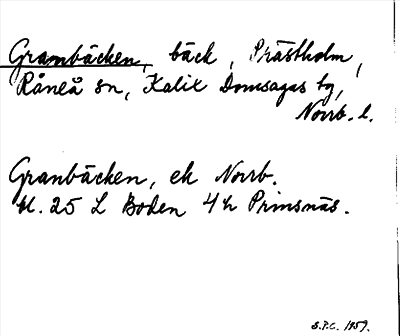 Grambäcken, bäck, Prästholm,
Råneå sn, Kalix Domsagas tg,
Norrb. l.
Granbäcken, ek Norrb.
bl. 25 L Boden 4h Prinsnäs.
S.P.C. 1959.